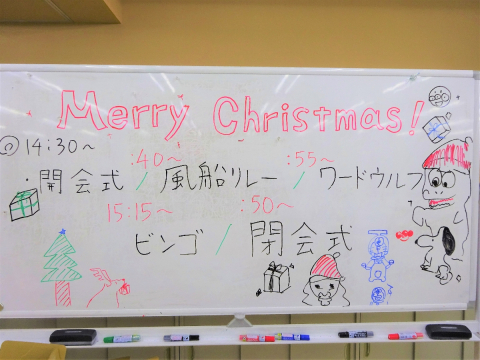 Merry Christmas!
14:30～ :40～ :55～
・開会式 / 風船リレー / ワードウルフ
15:15～ :50～
ビンゴ / 閉会式